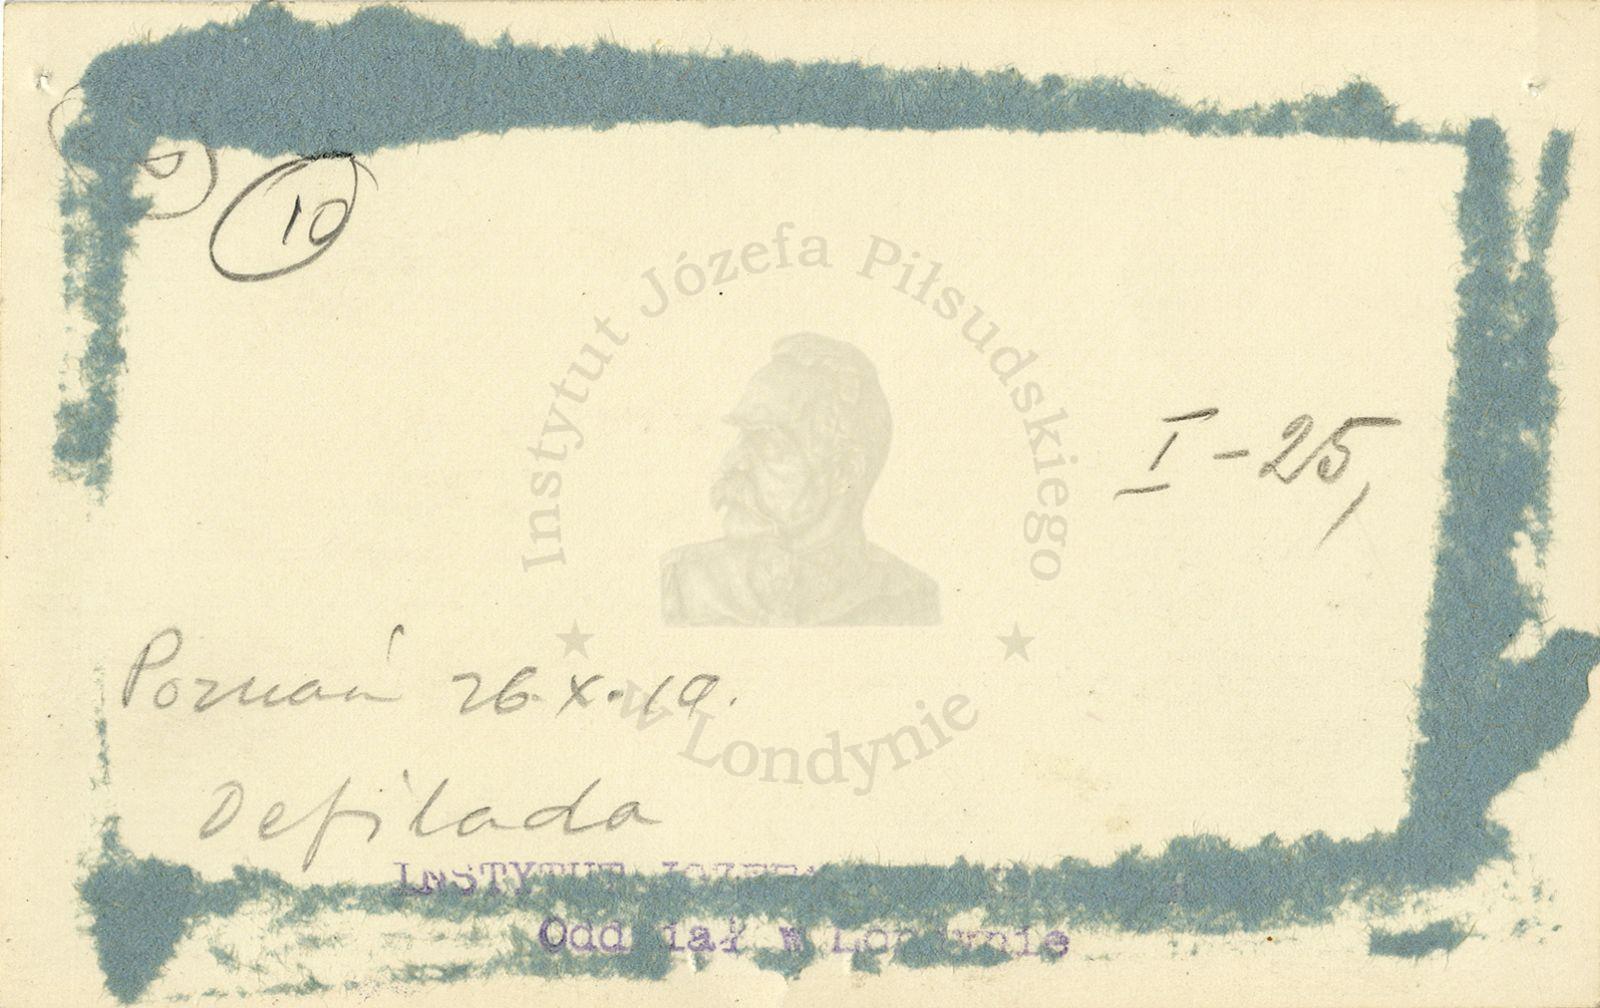 10
Instytut Józefa Piłsudskiego
w Londynie
I-25,
Poznań 26.X.19.
Defilada
INSTYTUT JOZEFA
Oddział w Londynie